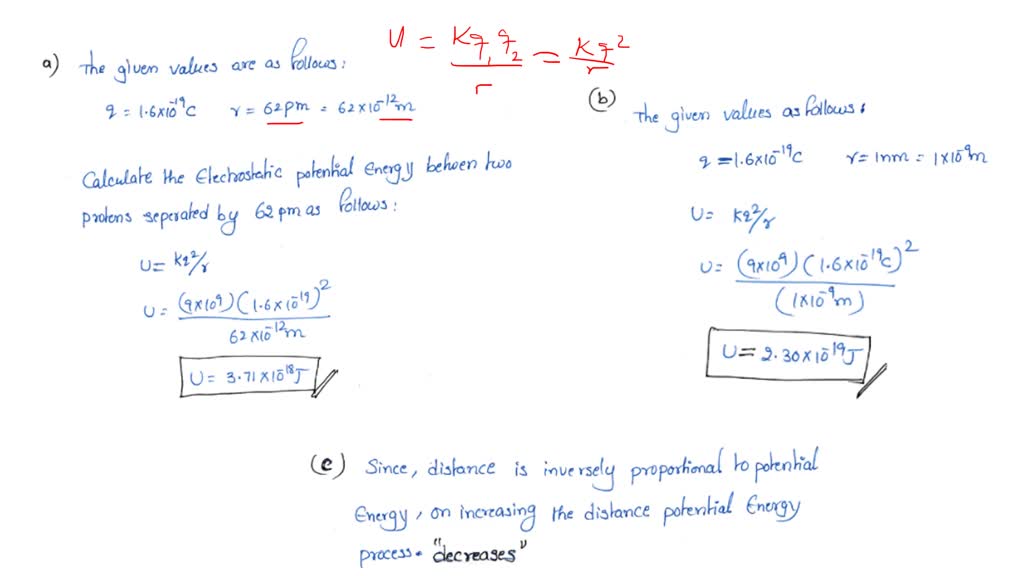 U = Kq₁q₂/r = Kq²/r
a) The given values are as follows:
q = 1.6×10⁻¹⁹C r = 62pm = 62×10⁻¹²m
Calculate the Electrostatic potential Energy between two
protens seperated by 62pm as follows:
U= Kq²/r
U= (9×10⁹)(1.6×10⁻¹⁹)²
62×10⁻¹²m
U= 3.71×10⁻¹⁸J
(b)
The given values as follows:
q =1.6×10⁻¹⁹C r=1nm = 1×10⁻⁹m
U= Kq²/r
U= (9×10⁹)(1.6×10⁻¹⁹C)²
(1×10⁻⁹m)
U= 2.30×10⁻¹⁹J
(c) Since, distance is inversely proportional to potential
Energy, on increasing the distance potential Energy
process. "decreases"